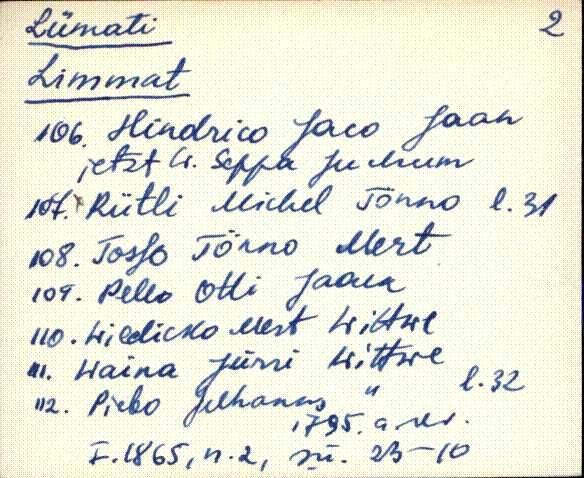 Lümati 2
Limmat
106. Hindrico Jaco Jaan
jetzt W. Seppa Juhum
107. Rütli Michel Tönno l. 31
108. Tosso Tönno Mert
109. Pello Otti Jaan
110. Wiedicko Mert Wittwe
111. Waina Jürri Wittwe
112. Pirko Juhanns " l. 32
1795. a.
F. 1865, n. 2, sü. 23-10